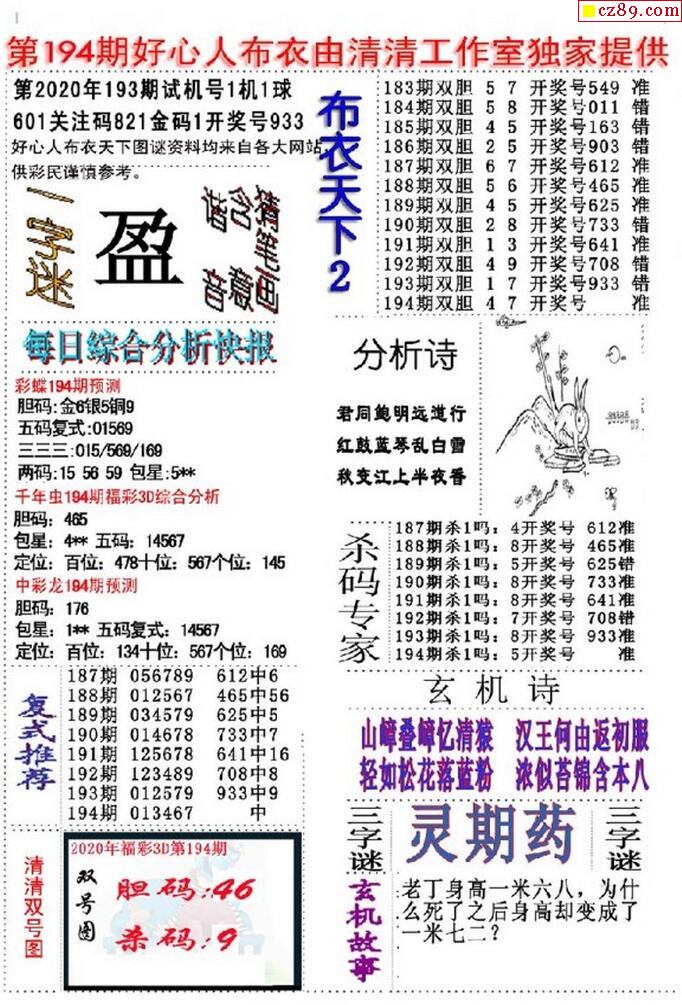 cz89.com
第194期好心人布衣由清清工作室独家提供
第2020年193期试机号1机1球
601关注码821金码1开奖号933
好心人布衣天下图谜资料均来自各大网站,
供彩民谨慎参考。
一字迷
盈
谐音
含意
猜笔画
布衣天下2
183期双胆 5 7 开奖号549 准
184期双胆 5 8 开奖号011 错
185期双胆 4 5 开奖号163 错
186期双胆 2 5 开奖号903 错
187期双胆 6 7 开奖号612 准
188期双胆 5 6 开奖号465 准
189期双胆 4 5 开奖号625 准
190期双胆 2 8 开奖号733 错
191期双胆 1 3 开奖号641 准
192期双胆 4 9 开奖号708 错
193期双胆 1 7 开奖号933 错
194期双胆 4 7 开奖号 准
每日综合分析快报
彩蝶194期预测
胆码:金6银5铜9
五码复式:01569
三三三:015/569/169
两码:15 56 59 包星:5**
千年虫194期福彩3D综合分析
胆码: 465
包星: 4** 五码: 14567
定位: 百位: 478十位: 567个位: 145
中彩龙194期预测
胆码: 176
包星: 1** 五码复式: 14567
定位: 百位: 134十位: 567个位: 169
分析诗
君同鲍明远道行
红鼓蓝琴乱白雪
秋变江上半夜香
杀码专家
187期杀1吗: 4开奖号 612准
188期杀1吗: 8开奖号 465准
189期杀1吗: 5开奖号 625错
190期杀1吗: 8开奖号 733准
191期杀1吗: 8开奖号 641准
192期杀1吗: 7开奖号 708错
193期杀1吗: 8开奖号 933准
194期杀1吗: 5开奖号 准
复式推荐
187期 056789 612中6
188期 012567 465中56
189期 034579 625中5
190期 014678 733中7
191期 125678 641中16
192期 123489 708中8
193期 012579 933中9
194期 013467 中
玄机诗
山嶂叠嶂忆清猿 汉王何由返初服
轻如松花落蓝粉 浓似苔锦含本八
三字谜
灵期药
三字谜
清清双号图
2020年福彩3D第194期
双号图
胆码:46
杀码:9
玄机故事
老丁身高一米六八，为什
么死了之后身高却变成了
一米七二？